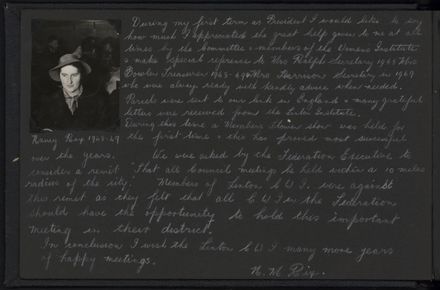 During my first term as President I would like to say
how much I appreciated the great help given to me at all
times by the Committee & members of the Womens Institute
& make special reference to Mrs Ralph Secretary 1963 Mrs
Bowler Treasurer 1963-69 & Mrs Harrison Secretary in 1969
who were always ready with kindly advice when needed.
Parcels were sent to our link in England & many grateful
letters were received from the Linton Institute.
During this time a Members Flower show was held for
the first time & this has proved most successful
Nancy Rix 1963-69
over the years. We were asked by the Federation Executive to
consider a remit "That all Council meetings be held within a 10 miles
radius of the city." Members of Linton C W I. were against
this remit as they felt that all C W I in the Federation
should have the opportunity to hold this important
meeting in their district.
In conclusion I wish the Linton C W I many more years
of happy meetings.
N. M. Rix.